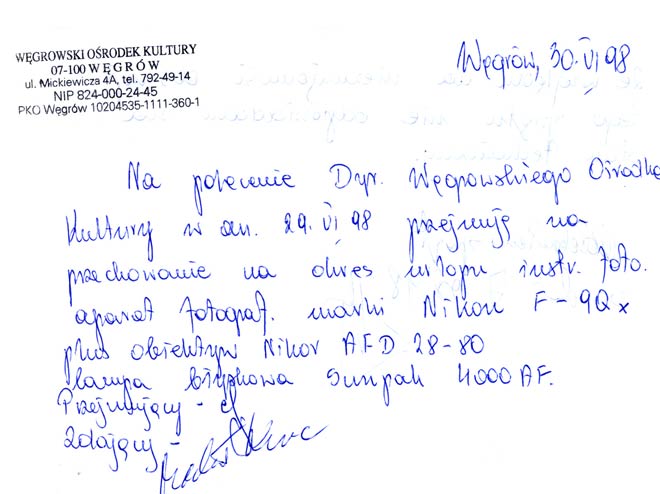 WĘGROWSKI OŚRODEK KULTURY
07-100 W Ę G R Ó W
ul. Mickiewicza 4A, tel. 792-49-14
NIP 824-000-24-45
PKO Węgrów 10204535-1111-360-1
Węgrów, 30.VI 98
Na polecenie Dyr. Węgrowskiego Ośrodka
Kultury w dn. 29.VI 98 przejmuję na
przechowanie na okres urlopu instr. foto.
aparat fotograf. marki Nikon F-90x
plus obiektyw Nikor AFD 28-80
lampa błyskowa Sunpak 4000 AF.
Przejmujący -
Zdający -